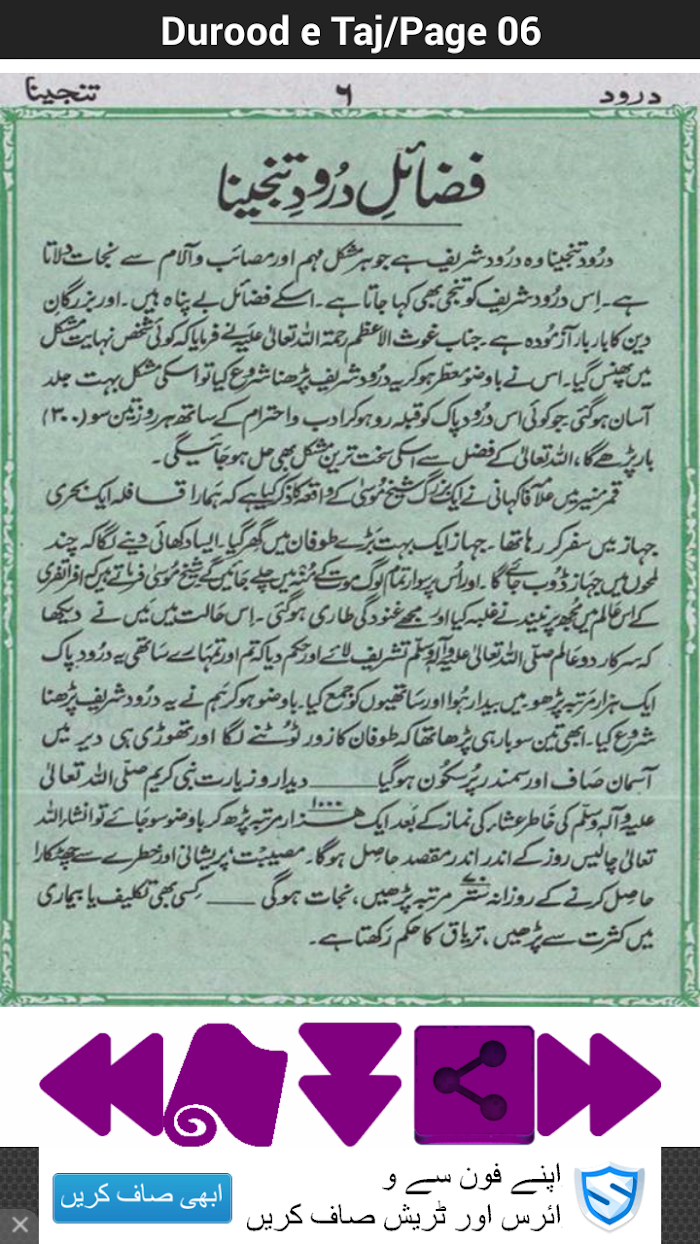 Durood e Taj/Page 06
درود ۶ تنجینا
فضائلِ درُودِ تنجینا
درُود تنجینا وہ درُود شریف ہے جو ہر مشکل مہم اور مصائب و آلام سے نجات دلاتا
ہے۔ اِس درُود شریف کو تنجی بھی کہا جاتا ہے۔ اسکے فضائل بے پناہ ہیں۔ اور بزرگانِ
دین کا بار بار آزمُودہ ہے۔ جناب غوث الاعظم رحمۃ اللہ تعالیٰ علیہ نے فرمایا کہ کوئی شخص نہایت مشکل
میں پھنس گیا۔ اس نے باوضو معطر ہو کر یہ درود شریف پڑھنا شروع کیا تو اسکی مشکل بہت جلد
آسان ہو گئی۔ جو کوئی اس درود پاک کو قبلہ رو ہو کر ادب و احترام کے ساتھ ہر روز تین سو (۳۰۰)
بار پڑھے گا، اللہ تعالیٰ کے فضل سے اسکی سخت ترین مشکل بھی حل ہو جائیگی۔
قمر منیر میں علّامہ فاکہانی نے ایک بزرگ شیخ مُوسیٰ کے واقعہ کا ذکر کیا ہے کہ ہمارا قافلہ ایک بحری
جہاز میں سفر کر رہا تھا۔ جہاز ایک بہت بڑے طوفان میں گھر گیا۔ ایسا دکھائی دینے لگا کہ چند
لمحوں میں جہاز ڈُوب جائے گا۔ اور اُس پر سوار تمام لوگ موت کے مُنہ میں چلے جائیں گے شیخ موسیٰ فرماتے ہیں کہ افراتفری
کے اس عالم میں مُجھ پر نیند نے غلبہ کیا اور مجھے غنودگی طاری ہو گئی۔ اِس حالت میں میں نے دیکھا
کہ سرکارِ دو عالم صلّی اللہ تعالیٰ علیہ وآلہٖ وسلم تشریف لائے اور حکم دیا کہ تم اور تمہارے ساتھی یہ درود پاک
ایک ہزار مرتبہ پڑھو میں بیدار ہُوا اور ساتھیوں کو جمع کیا۔ باوضو ہو کر ہم نے یہ درود شریف پڑھنا
شروع کیا۔ ابھی تین سو بار ہی پڑھا تھا کہ طوفان کا زور ٹوٹنے لگا اور تھوڑی ہی دیر میں
آسمان صاف اور سمندر پُر سکُون ہو گیا ـــــــــ دیدار و زیارت نبی کریم صلّی اللہ تعالیٰ
علیہ وآلہ وسلم کی خاطر عشاء کی نماز کے بعد ایک ہزار ۱۰۰۰ مرتبہ پڑھ کر باوضو سو جائے تو انشاءاللہ
تعالیٰ چالیس روز کے اندر اندر مقصد حاصل ہو گا۔ مصیبت، پریشانی اور خطرے سے چھٹکارا
حاصل کرنے کے روزانہ ستّر ۷۰ مرتبہ پڑھیں، نجات ہو گی ـــــــ کِسی بھی تکلیف یا بیماری
میں کثرت سے پڑھیں، تریاق کا حکم رکھتا ہے۔
اپنے فون سے و
ائرس اور ٹریش صاف کریں
ابھی صاف کریں